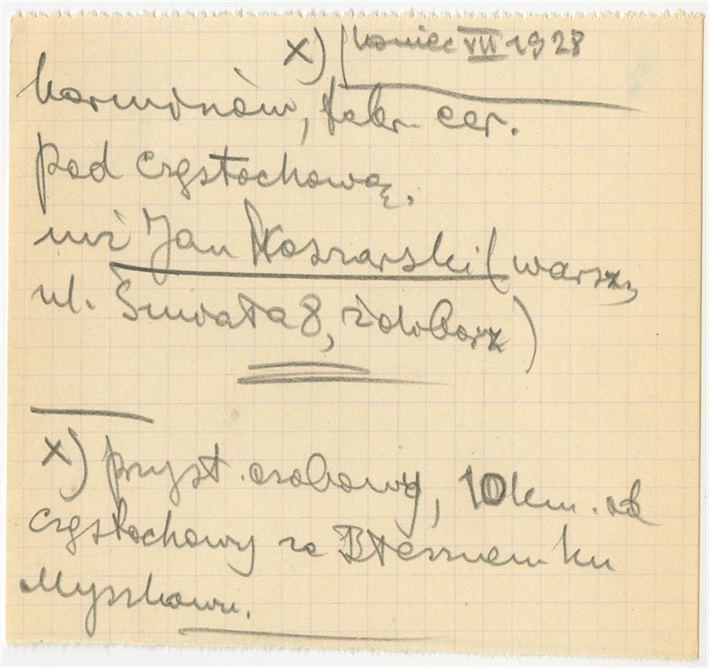 x) koniec VII 1928
Korwinów, fabr. cer.
pod Częstochową.
inż Jan Koszarski (Warsz,
ul. Śmiała 8, Żoliborz)
x) przyst. osobowy, 10 km. od
Częstochowy za Błesznem ku
Myszkowu.